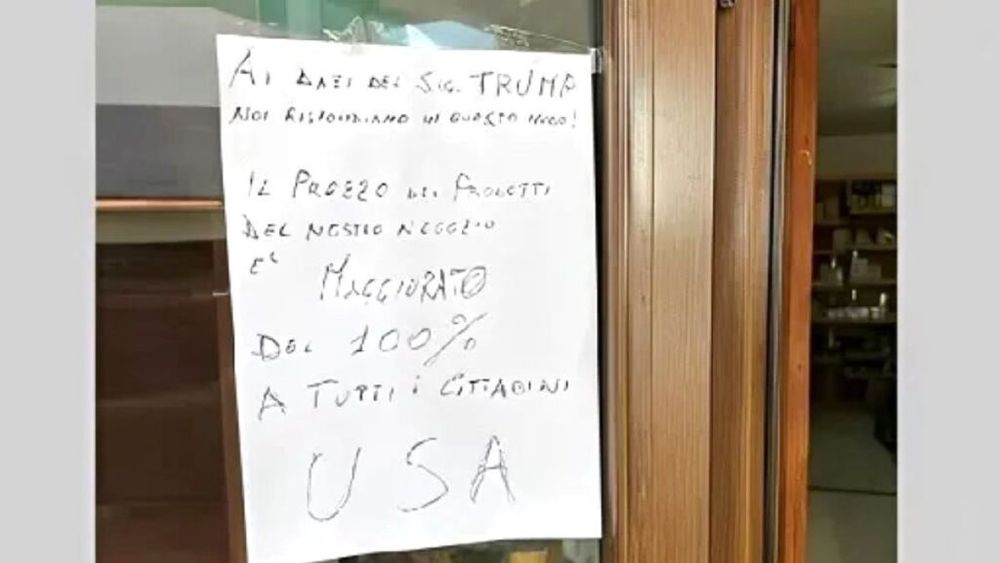 AI DAZI DEL SIG. TRUMP
NOI RISPONDIAMO IN QUESTO MODO!
IL PREZZO DEI PRODOTTI
DEL NOSTRO NEGOZIO
E'
MAGGIORATO
DEL 100%
A TUTTI i CITTADINI
USA